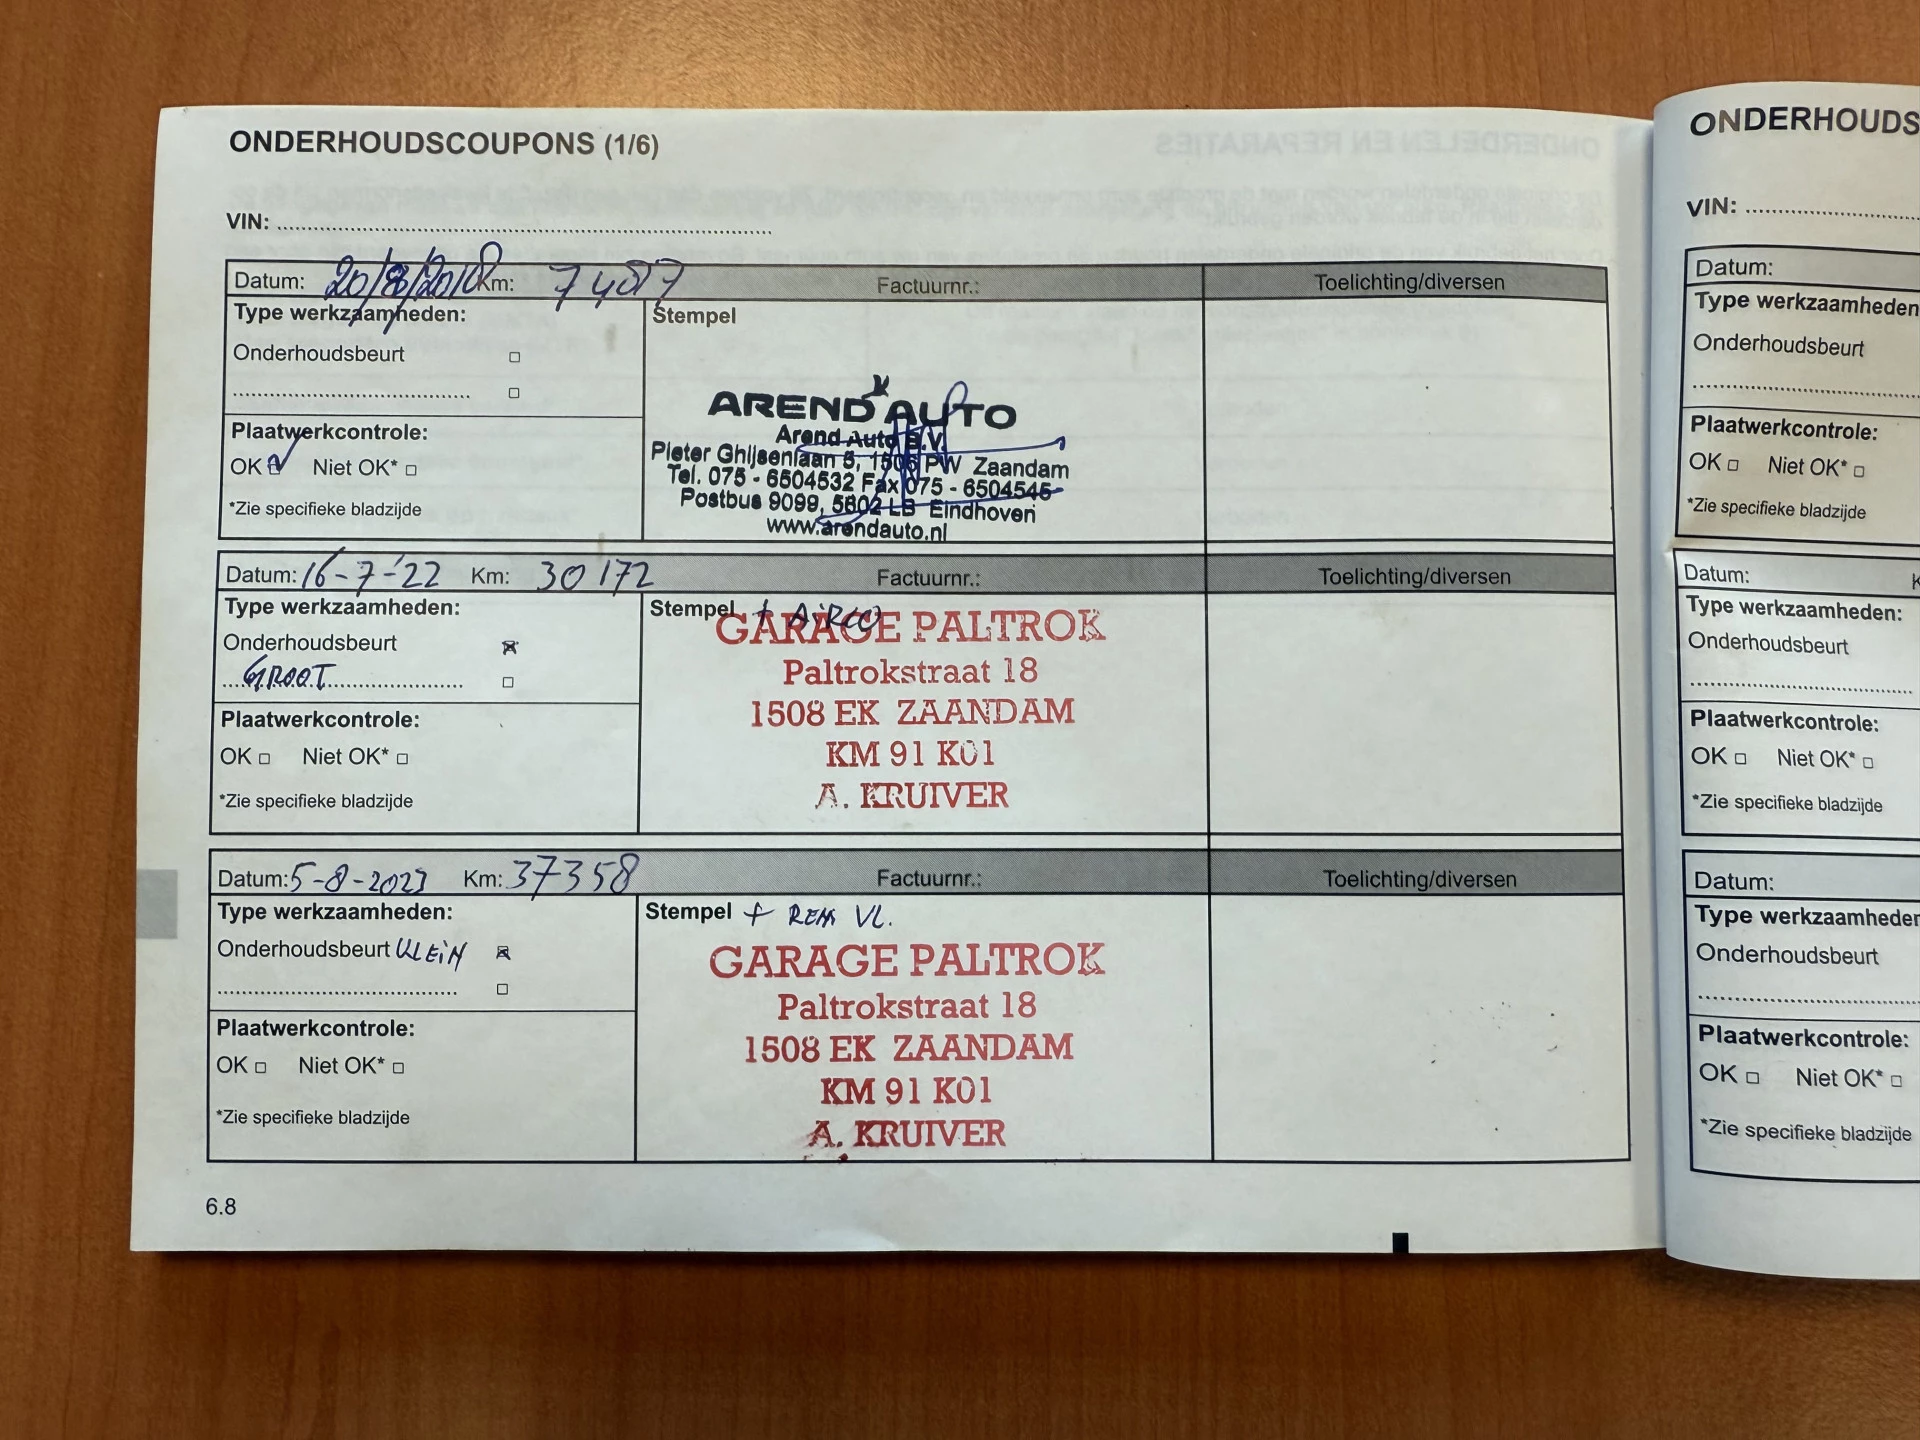 ONDERHOUDSCOUPONS (1/6)
VIN:
Datum: 20/8/2018 Km: 7487 Factuurnr.: Toelichting/diversen
Type werkzaamheden:
Stempel
Onderhoudsbeurt
AREND AUTO
Arend Auto B.V.
Pieter Ghijsenlaan 5, 1506 PW Zaandam
Tel. 075 - 6504532 Fax 075 - 6504545
Postbus 9099, 5602 LB Eindhoven
www.arendauto.nl
Plaatwerkcontrole:
OK Niet OK*
*Zie specifieke bladzijde
Datum: 16-7-'22 Km: 30172 Factuurnr.: Toelichting/diversen
Type werkzaamheden:
Stempel + AIRCO
Onderhoudsbeurt
GROOT
GARAGE PALTROK
Paltrokstraat 18
1508 EK ZAANDAM
KM 91 K01
A. KRUIVER
Plaatwerkcontrole:
OK Niet OK*
*Zie specifieke bladzijde
Datum: 5-8-2023 Km: 37358 Factuurnr.: Toelichting/diversen
Type werkzaamheden:
Stempel + REM VL.
Onderhoudsbeurt KLEIN
GARAGE PALTROK
Paltrokstraat 18
1508 EK ZAANDAM
KM 91 K01
A. KRUIVER
Plaatwerkcontrole:
OK Niet OK*
*Zie specifieke bladzijde
6.8
ONDERHOUDS
VIN:
Datum:
Type werkzaamheden
Onderhoudsbeurt
Plaatwerkcontrole:
OK Niet OK*
*Zie specifieke bladzijde
Datum: K
Type werkzaamheden:
Onderhoudsbeurt
Plaatwerkcontrole:
OK Niet OK*
*Zie specifieke bladzijde
Datum:
Type werkzaamheder
Onderhoudsbeurt
Plaatwerkcontrole:
OK Niet OK*
*Zie specifieke bladzijde